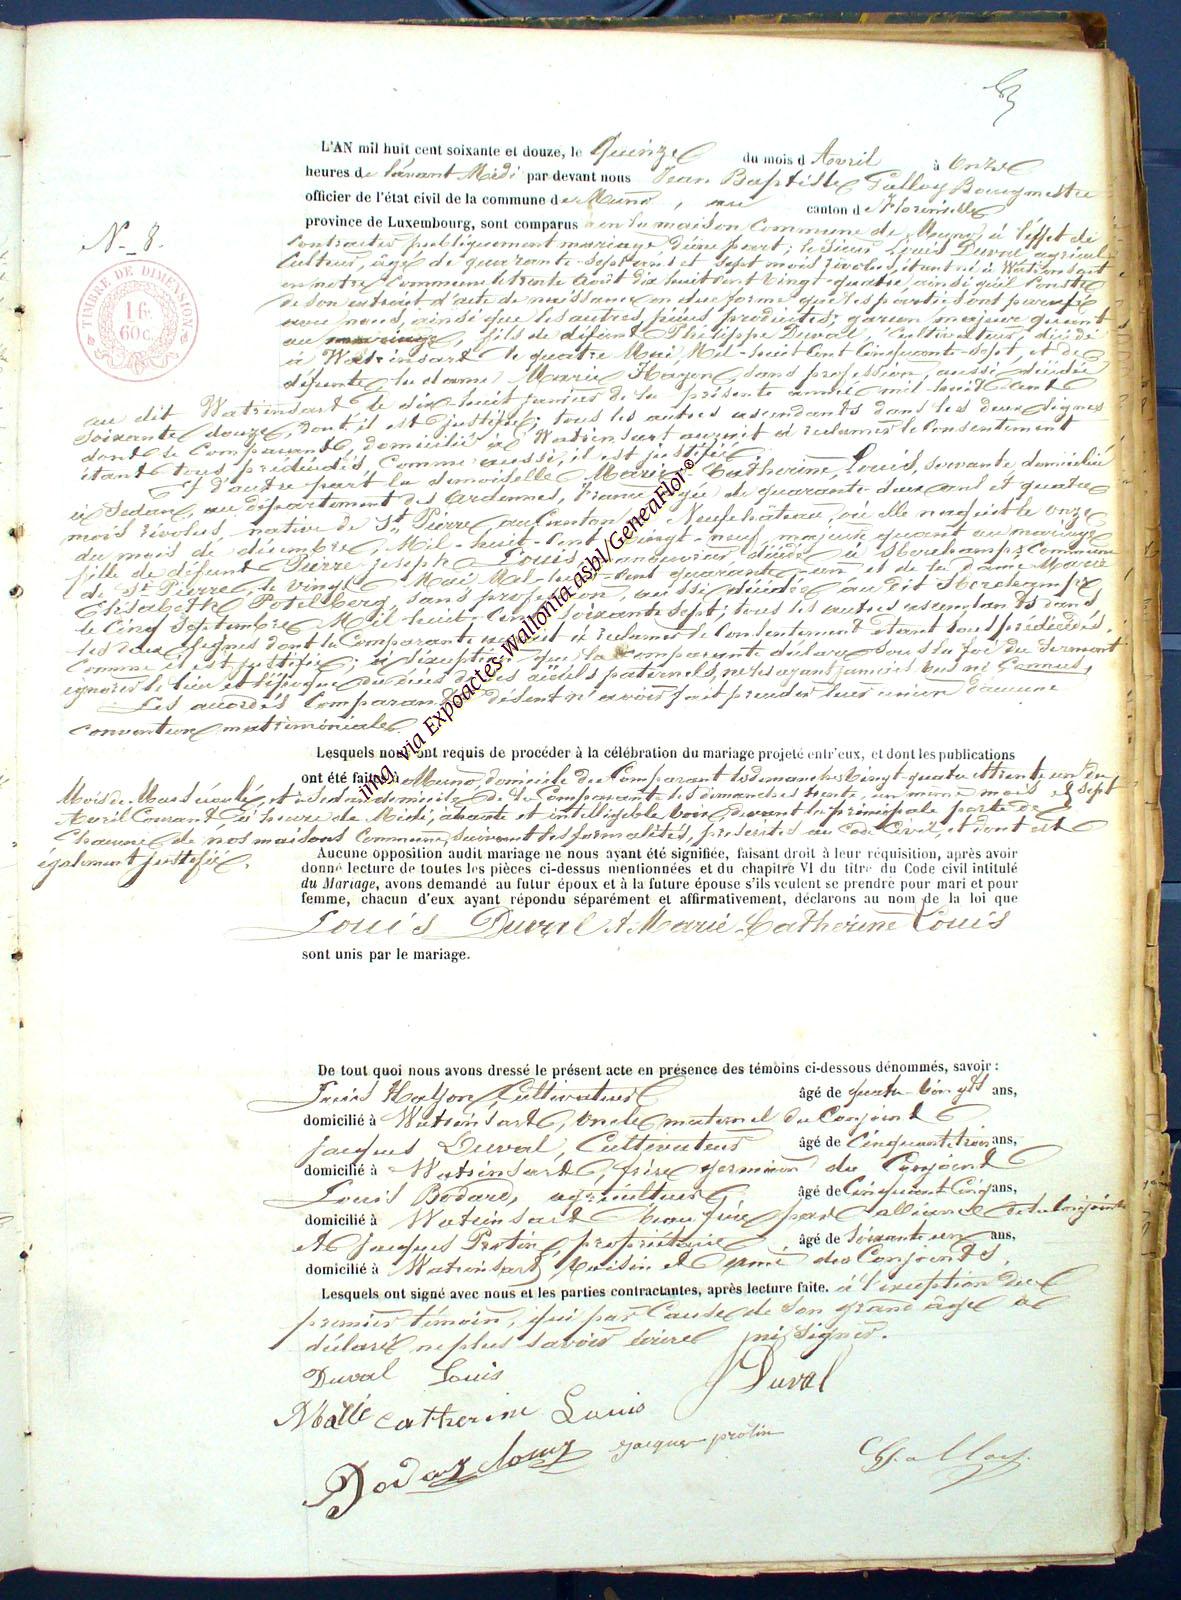 L'AN mil huit cent soixante et douze, le Quinze du mois d'Avril à Onze
heures de l'avant Midi par devant nous Jean Baptiste Galloy Bourgmestre
officier de l'état civil de la commune de Muno, au canton de Florenville
province de Luxembourg, sont comparus en la maison Commune de Muno à l'effet de
N° 8.
contracter publiquement mariage d'une part; le Sieur Louis Duval agricul-
TIMBRE DE DIMENSION
1 fr. 60 c.
culteur, âgé de quarante-sept ans et sept mois révolus, étant né à Watrinsart
en notre Commune le trente Août dix huit cent vingt-quatre ainsi qu'il conste
de son extrait d'acte de naissance en due forme que les parties ont paraphé
avec nous, ainsi que les autres pièces produites; garçon majeur quant
au mariage, fils de défunt Philippe Duval, Cultivateur, décédé
à Watrinsart le quatre Mai Mil-huit Cent Cinquante-sept, et de
défunte la dame Marie Hazon, sans profession, aussi décédée
au dit Watrinsart le dix-huit janvier de la présente année mil-huit-cent
soixante douze, dont il est justifié; tous les autres ascendants dans les deux lignes
dont le Comparant, domicilié à Watrinsart aurait à réclamer le Consentement
étant tous prédécédés, comme aussi il est justifié
Et d'autre part la demoiselle Marie Catherine Louis, servante domiciliée
à Sedan, au département des Ardennes, France, âgée de quarante-deux ans et quatre
mois révolus, native de St Pierre au Canton de Neufchâteau, où elle naquit le onze
du mois de décembre, Mil-huit-Cent vingt-neuf, majeure quant au mariage
fille de défunt Pierre-Joseph Louis, manouvrier, décédé à Morchamps Commune
de St Pierre, le vingt Mai Mil-huit-Cent quarante-un et de la Dame Marie
Elisabeth Potelberg, sans profession, aussi décédée au dit
le Cinq Septembre Mil huit-Cent soixante sept; tous les autres ascendants dans
les deux lignes dont la Comparante aurait à réclamer le Consentement étant tous prédécédés,
Comme il est justifié; à l'exception que la Comparante déclare sous la foi du Serment
ignorer le lieu et l'époque du décès de ses aïeuls paternels, ne les ayant jamais vus ni connus,
Les accordés Comparants disent n'avoir fait précéder leur union d'aucune
convention matrimoniale.
Lesquels nous ont requis de procéder à la célébration du mariage projeté entr'eux, et dont les publications
ont été faites à Muno, domicile du Comparant les dimanches vingt-quatre et trente un du
Mois de Mars écoulé, et à Sedan domicile de la Comparante les dimanches trente un même mois et sept
Avril Courant à l'heure de Midi, à haute et intelligible voix, devant la principale porte de
Chacune de nos maisons Communes, suivant les formalités, prescrites au Code Civil, et dont est
également justifié.
Aucune opposition audit mariage ne nous ayant été signifiée, faisant droit à leur réquisition, après avoir
donné lecture de toutes les pièces ci-dessus mentionnées et du chapitre VI du titre du Code civil intitulé
du Mariage, avons demandé au futur époux et à la future épouse s'ils veulent se prendre pour mari et pour
femme, chacun d'eux ayant répondu séparément et affirmativement, déclarons au nom de la loi que
Louis Duval et Marie Catherine Louis
sont unis par le mariage.
De tout quoi nous avons dressé le présent acte en présence des témoins ci-dessous dénommés, savoir :
Louis Hazon, Cultivateur âgé de quatre-vingts ans,
domicilié à Watrinsart, oncle maternel du Conjoint
Jacques Duval, Cultivateur âgé de Cinquante trois ans,
domicilié à Watrinsart, frère germain du Conjoint
Louis Bodard, agriculteur, âgé de Cinquante Cinq ans,
domicilié à Watrinsart beau frère par alliance du Conjoint
Et Jacques Protin, propriétaire âgé de Soixante un ans,
domicilié à Watrinsart, voisin et ami des Conjoints.
Lesquels ont signé avec nous et les parties contractantes, après lecture faite. à l'exception du
premier témoin, qui par Cause de son grand âge a
déclaré ne plus savoir écrire ni signer.
Duval Louis JDuval
Marie Catherine Louis
Bodard Louis Jacques protin Galloy
img. via Expoactes-Wallonia asbl/GeneaFlor®